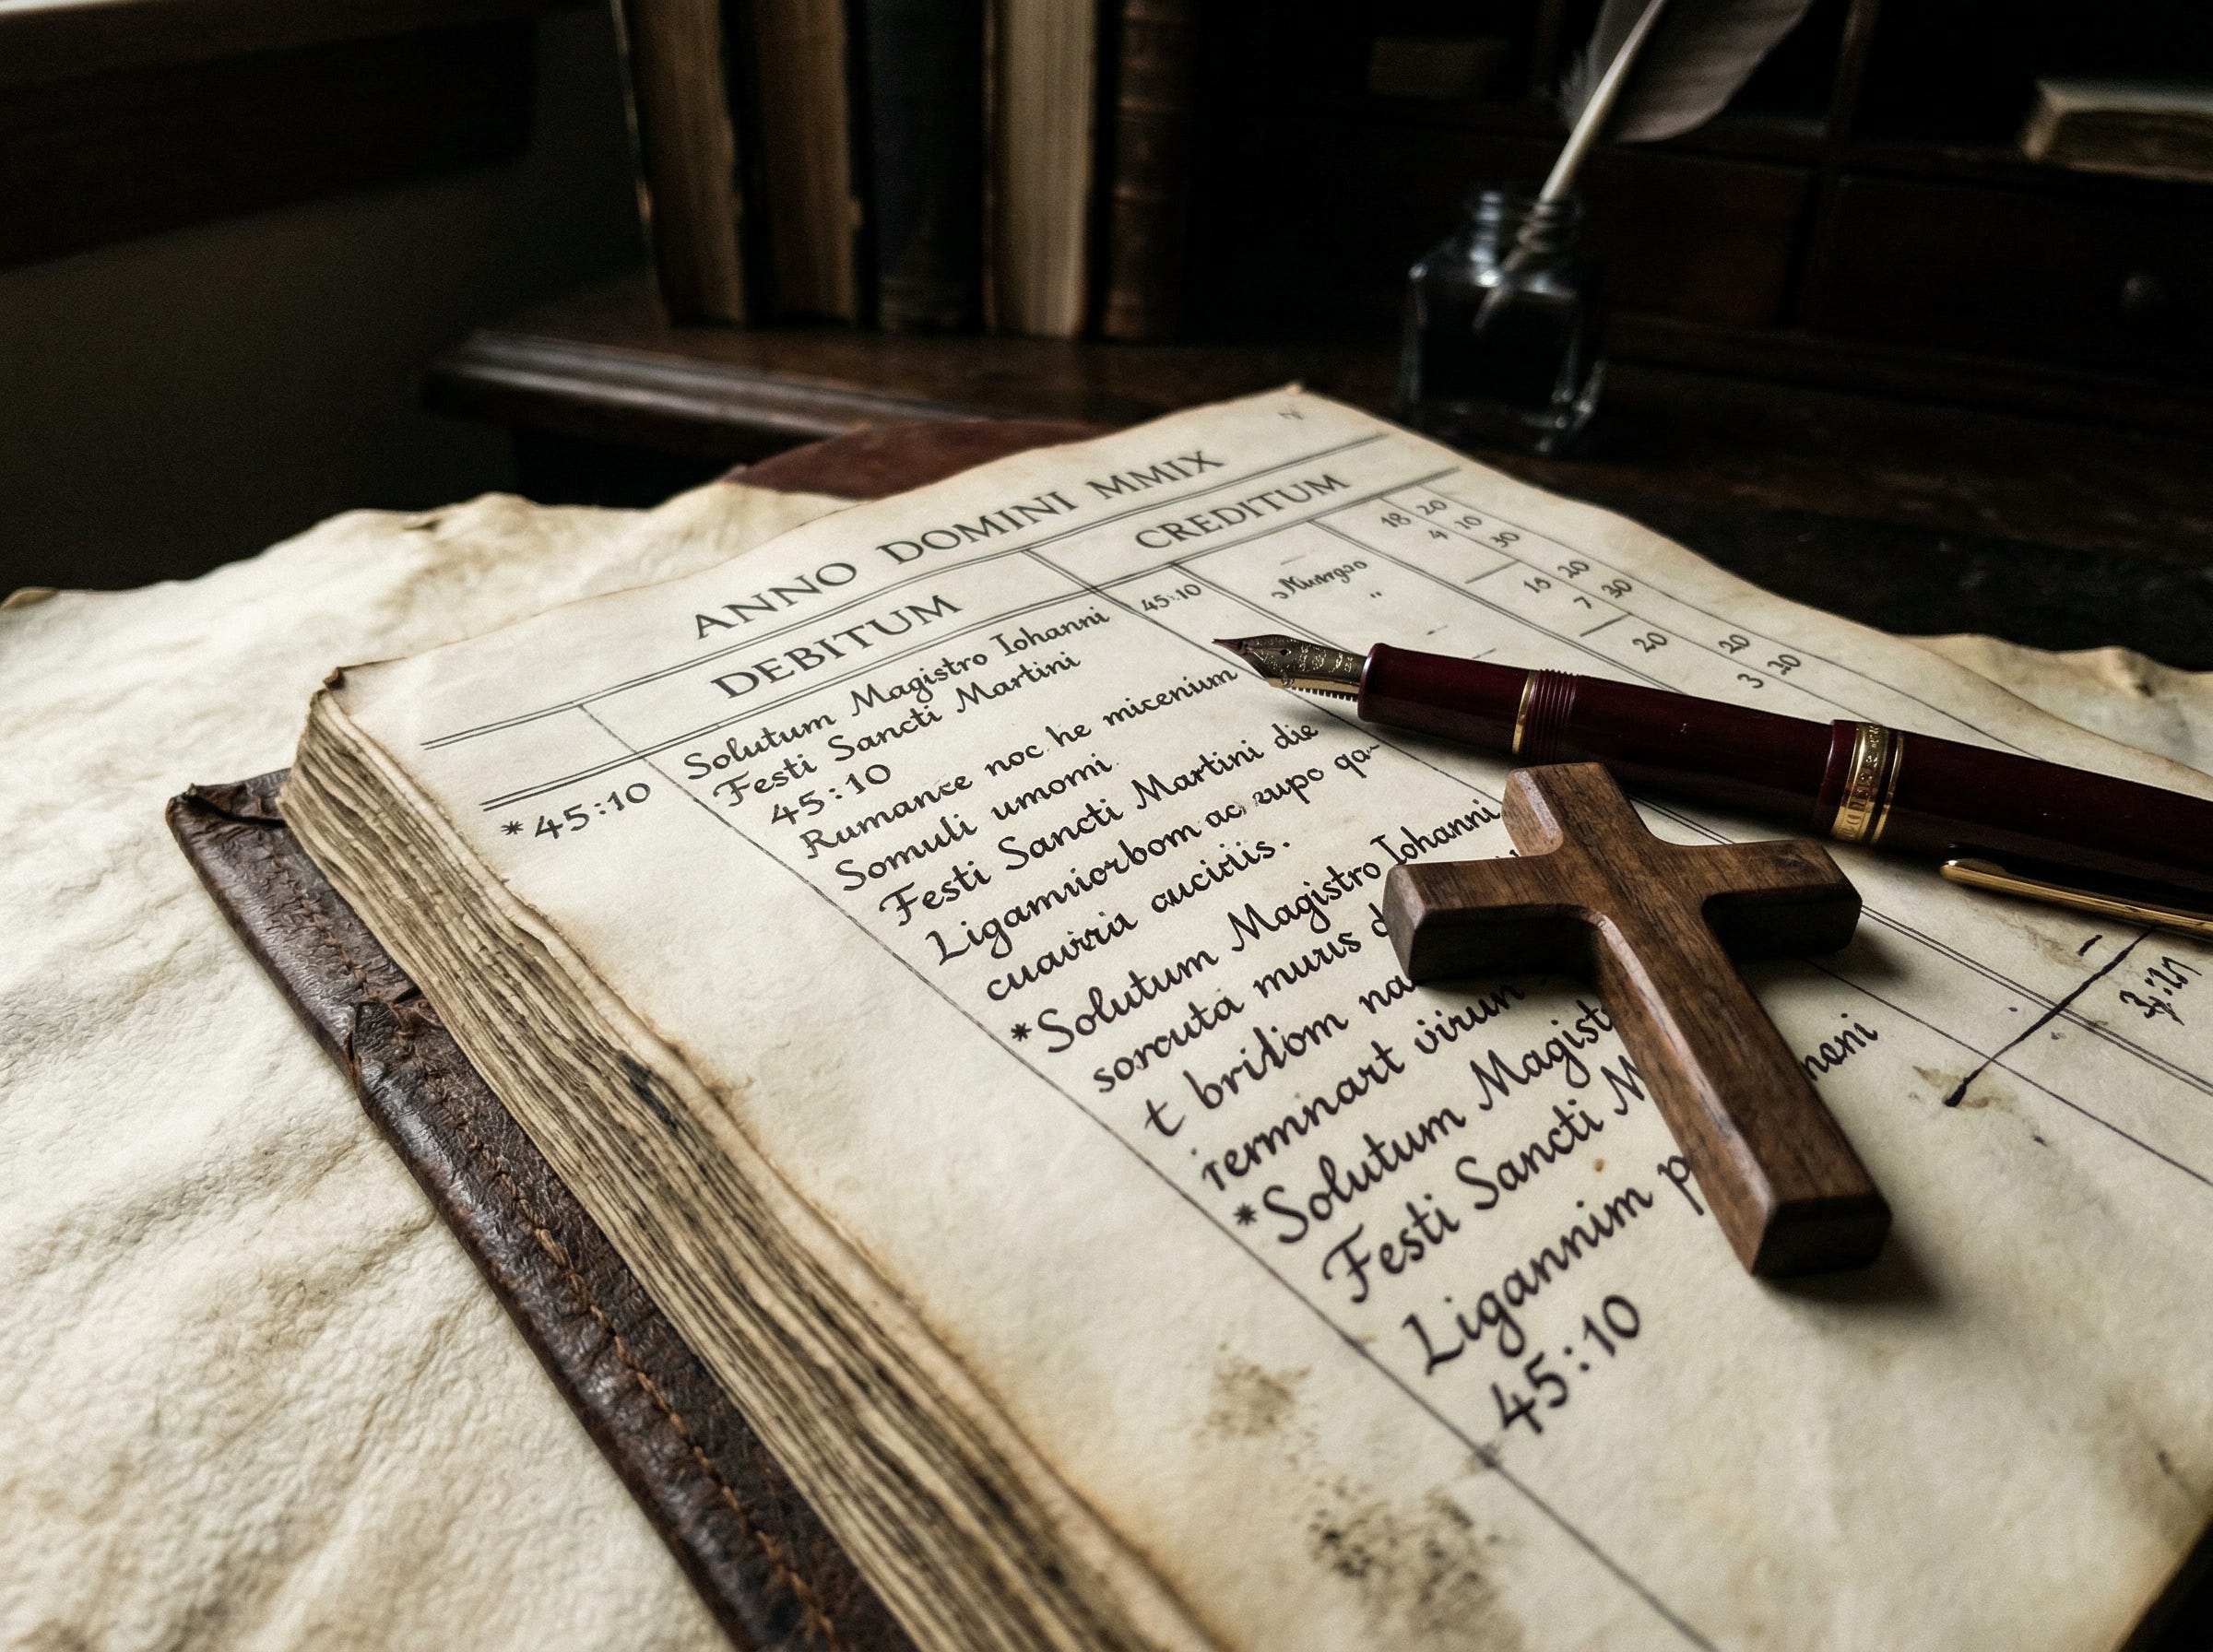 ANNO DOMINI MMIX
DEBITUM CREDITUM
*45:10
Solutum Magistro Iohanni 45:10
Festi Sancti Martini
45:10
Rumance noc he micenium
Somuli umomi.
Festi Sancti Martini die
Ligamniorbom ac, supo qa-
cuavria auciriis.
*Solutum Magistro Iohanni
sorcuta muris d
t brilom na
rermnart virun
*Solutum Magist
Festi Sancti M
nani
Ligannim p
45:10
18 20
4 10
30
20
7 30
20 20
3 20